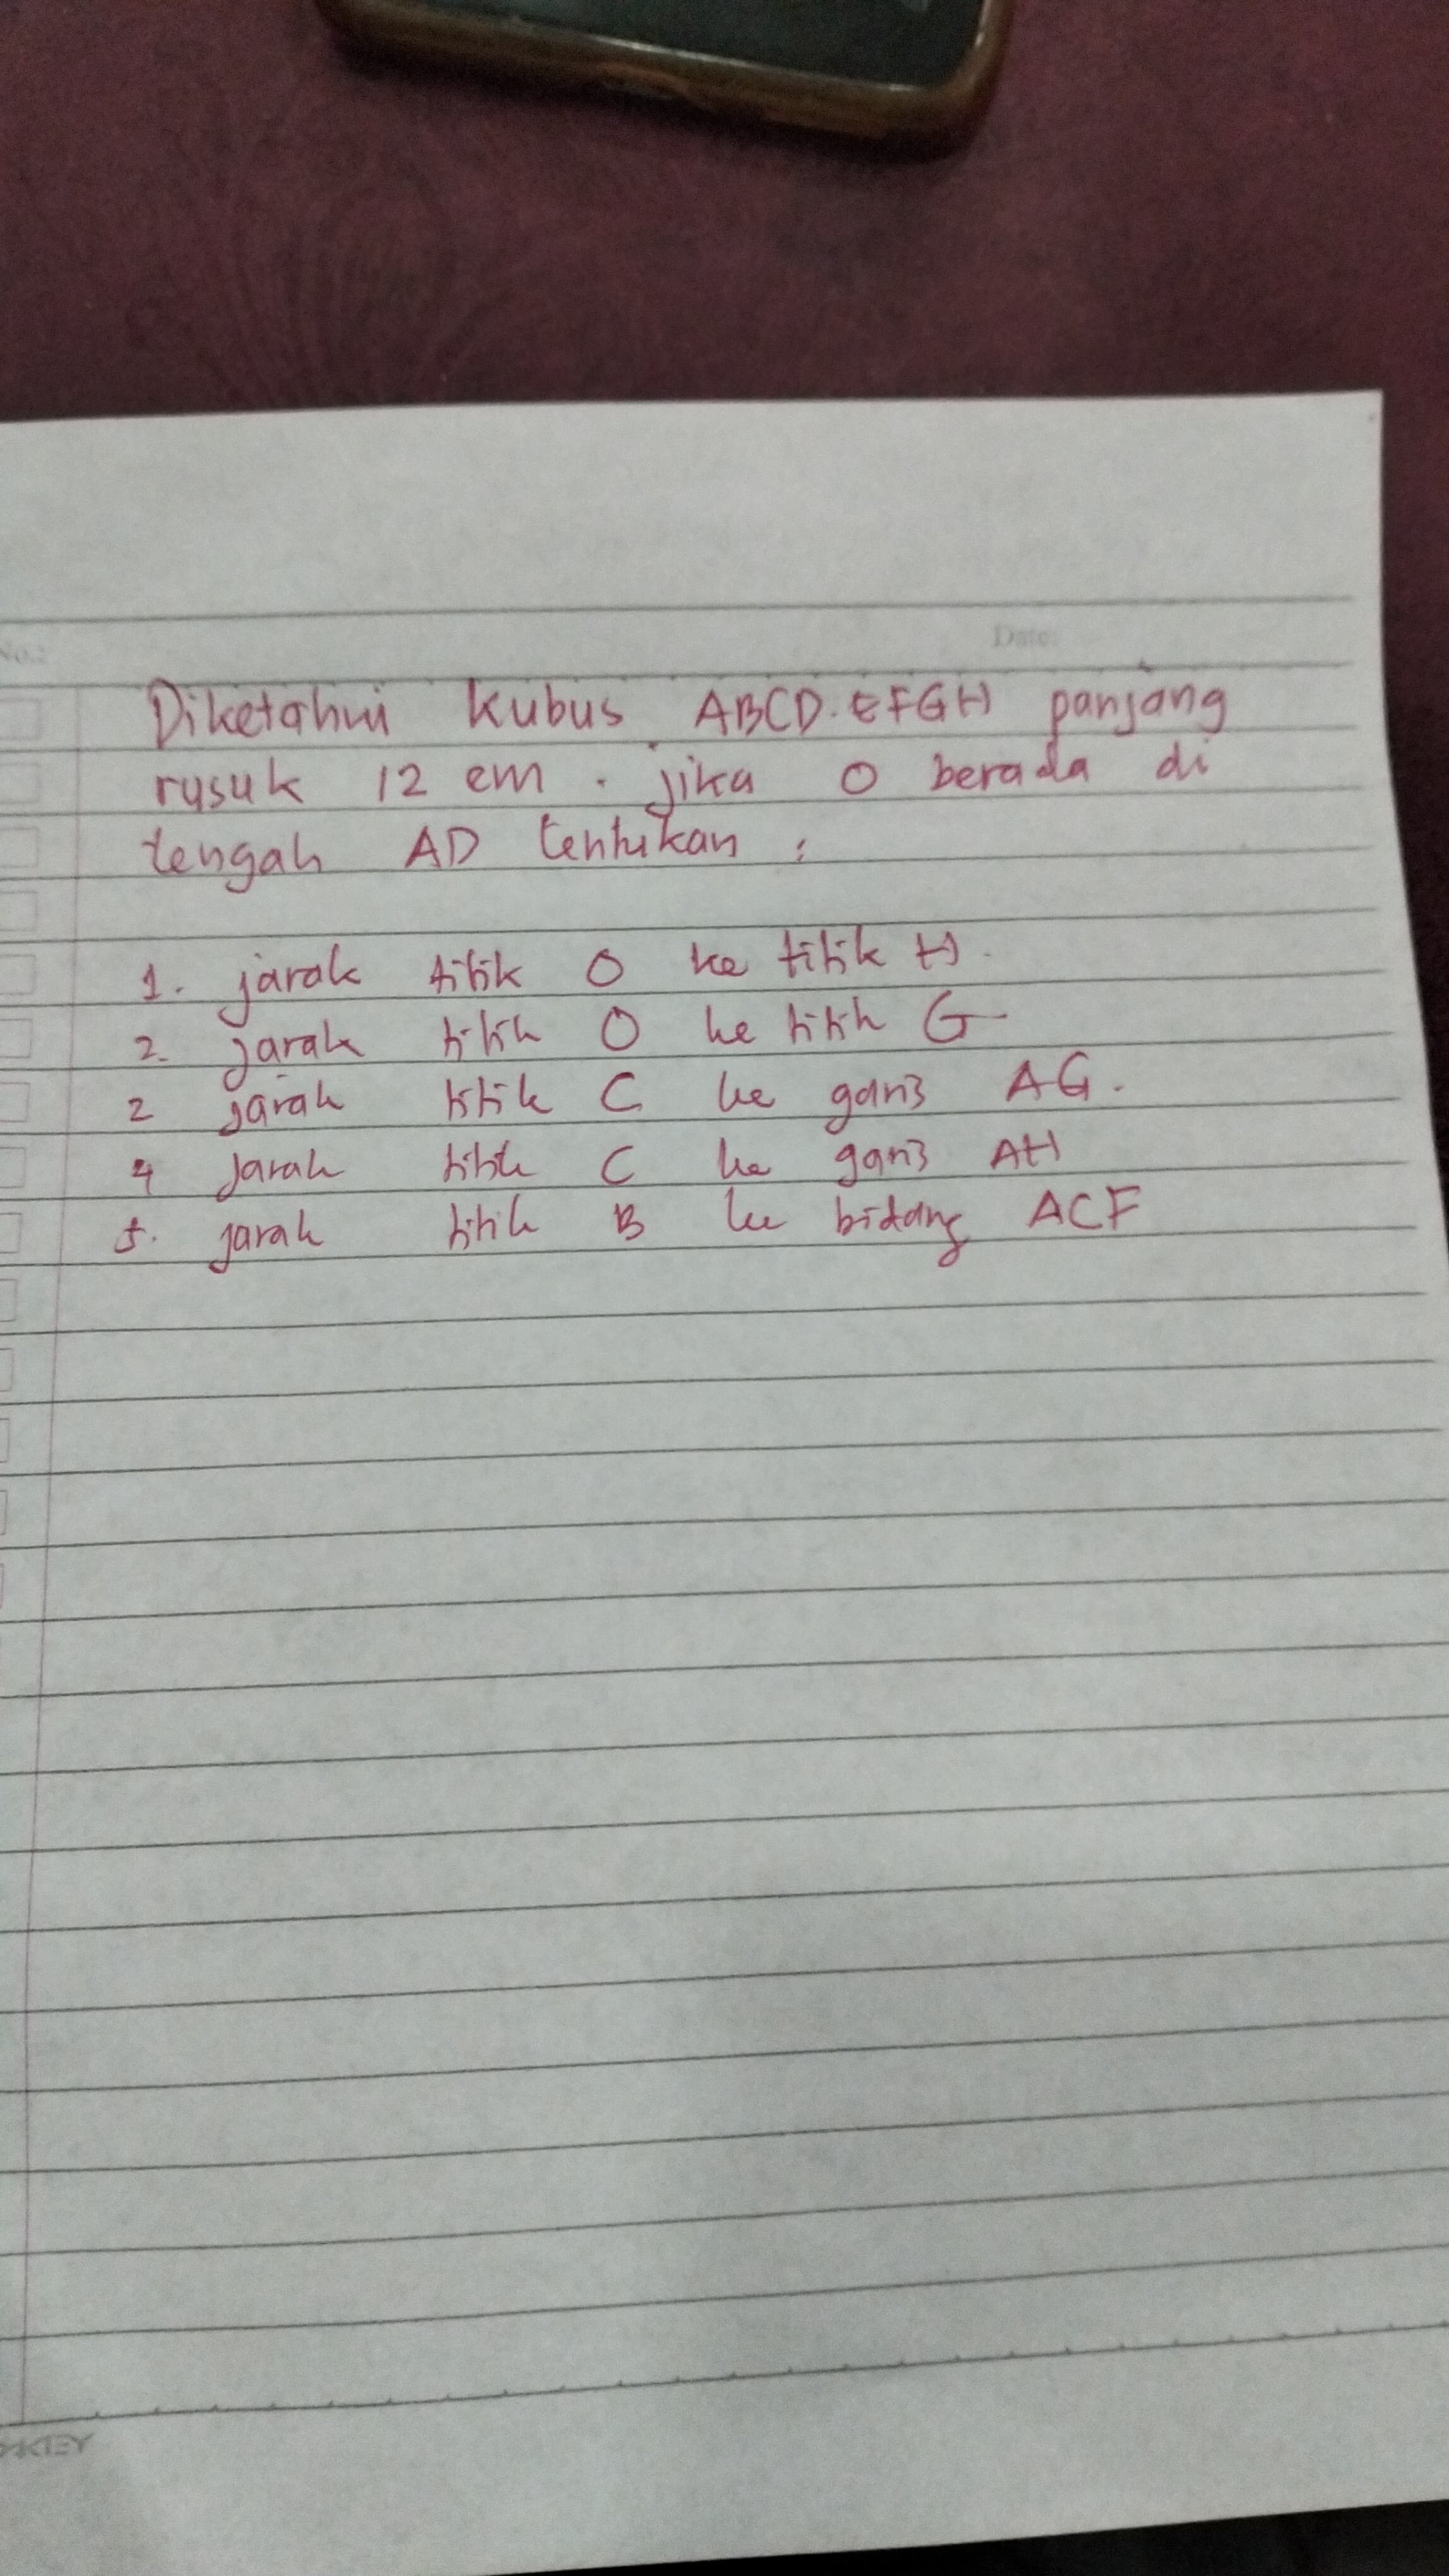 No.:
Date:
Diketahui kubus ABCD.EFGH panjang
rusuk 12 cm . jika O berada di
tengah AD tentukan :
1. jarak titik O ke titik H.
2. jarak titik O ke titik G
2 jarak titik C ke garis AG.
4 jarak titik C ke garis AH
5. jarak titik B ke bidang ACF